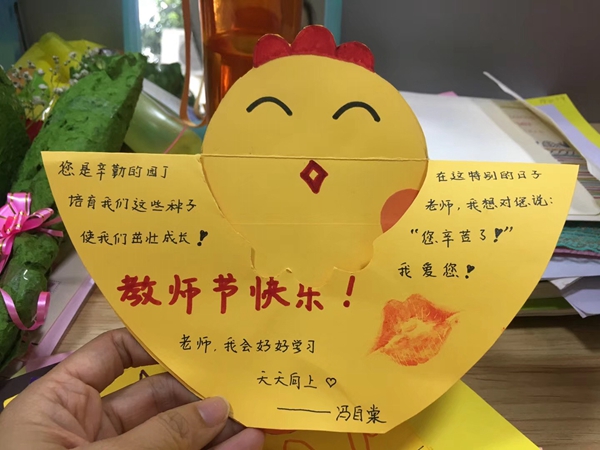 您是辛勤的园丁
培育我们这些种子
使我们茁壮成长!
在这特别的日子
老师,我想对您说:
“您辛苦了!”
我爱您!
教师节快乐!
老师,我会好好学习
天天向上♡
——冯自棠